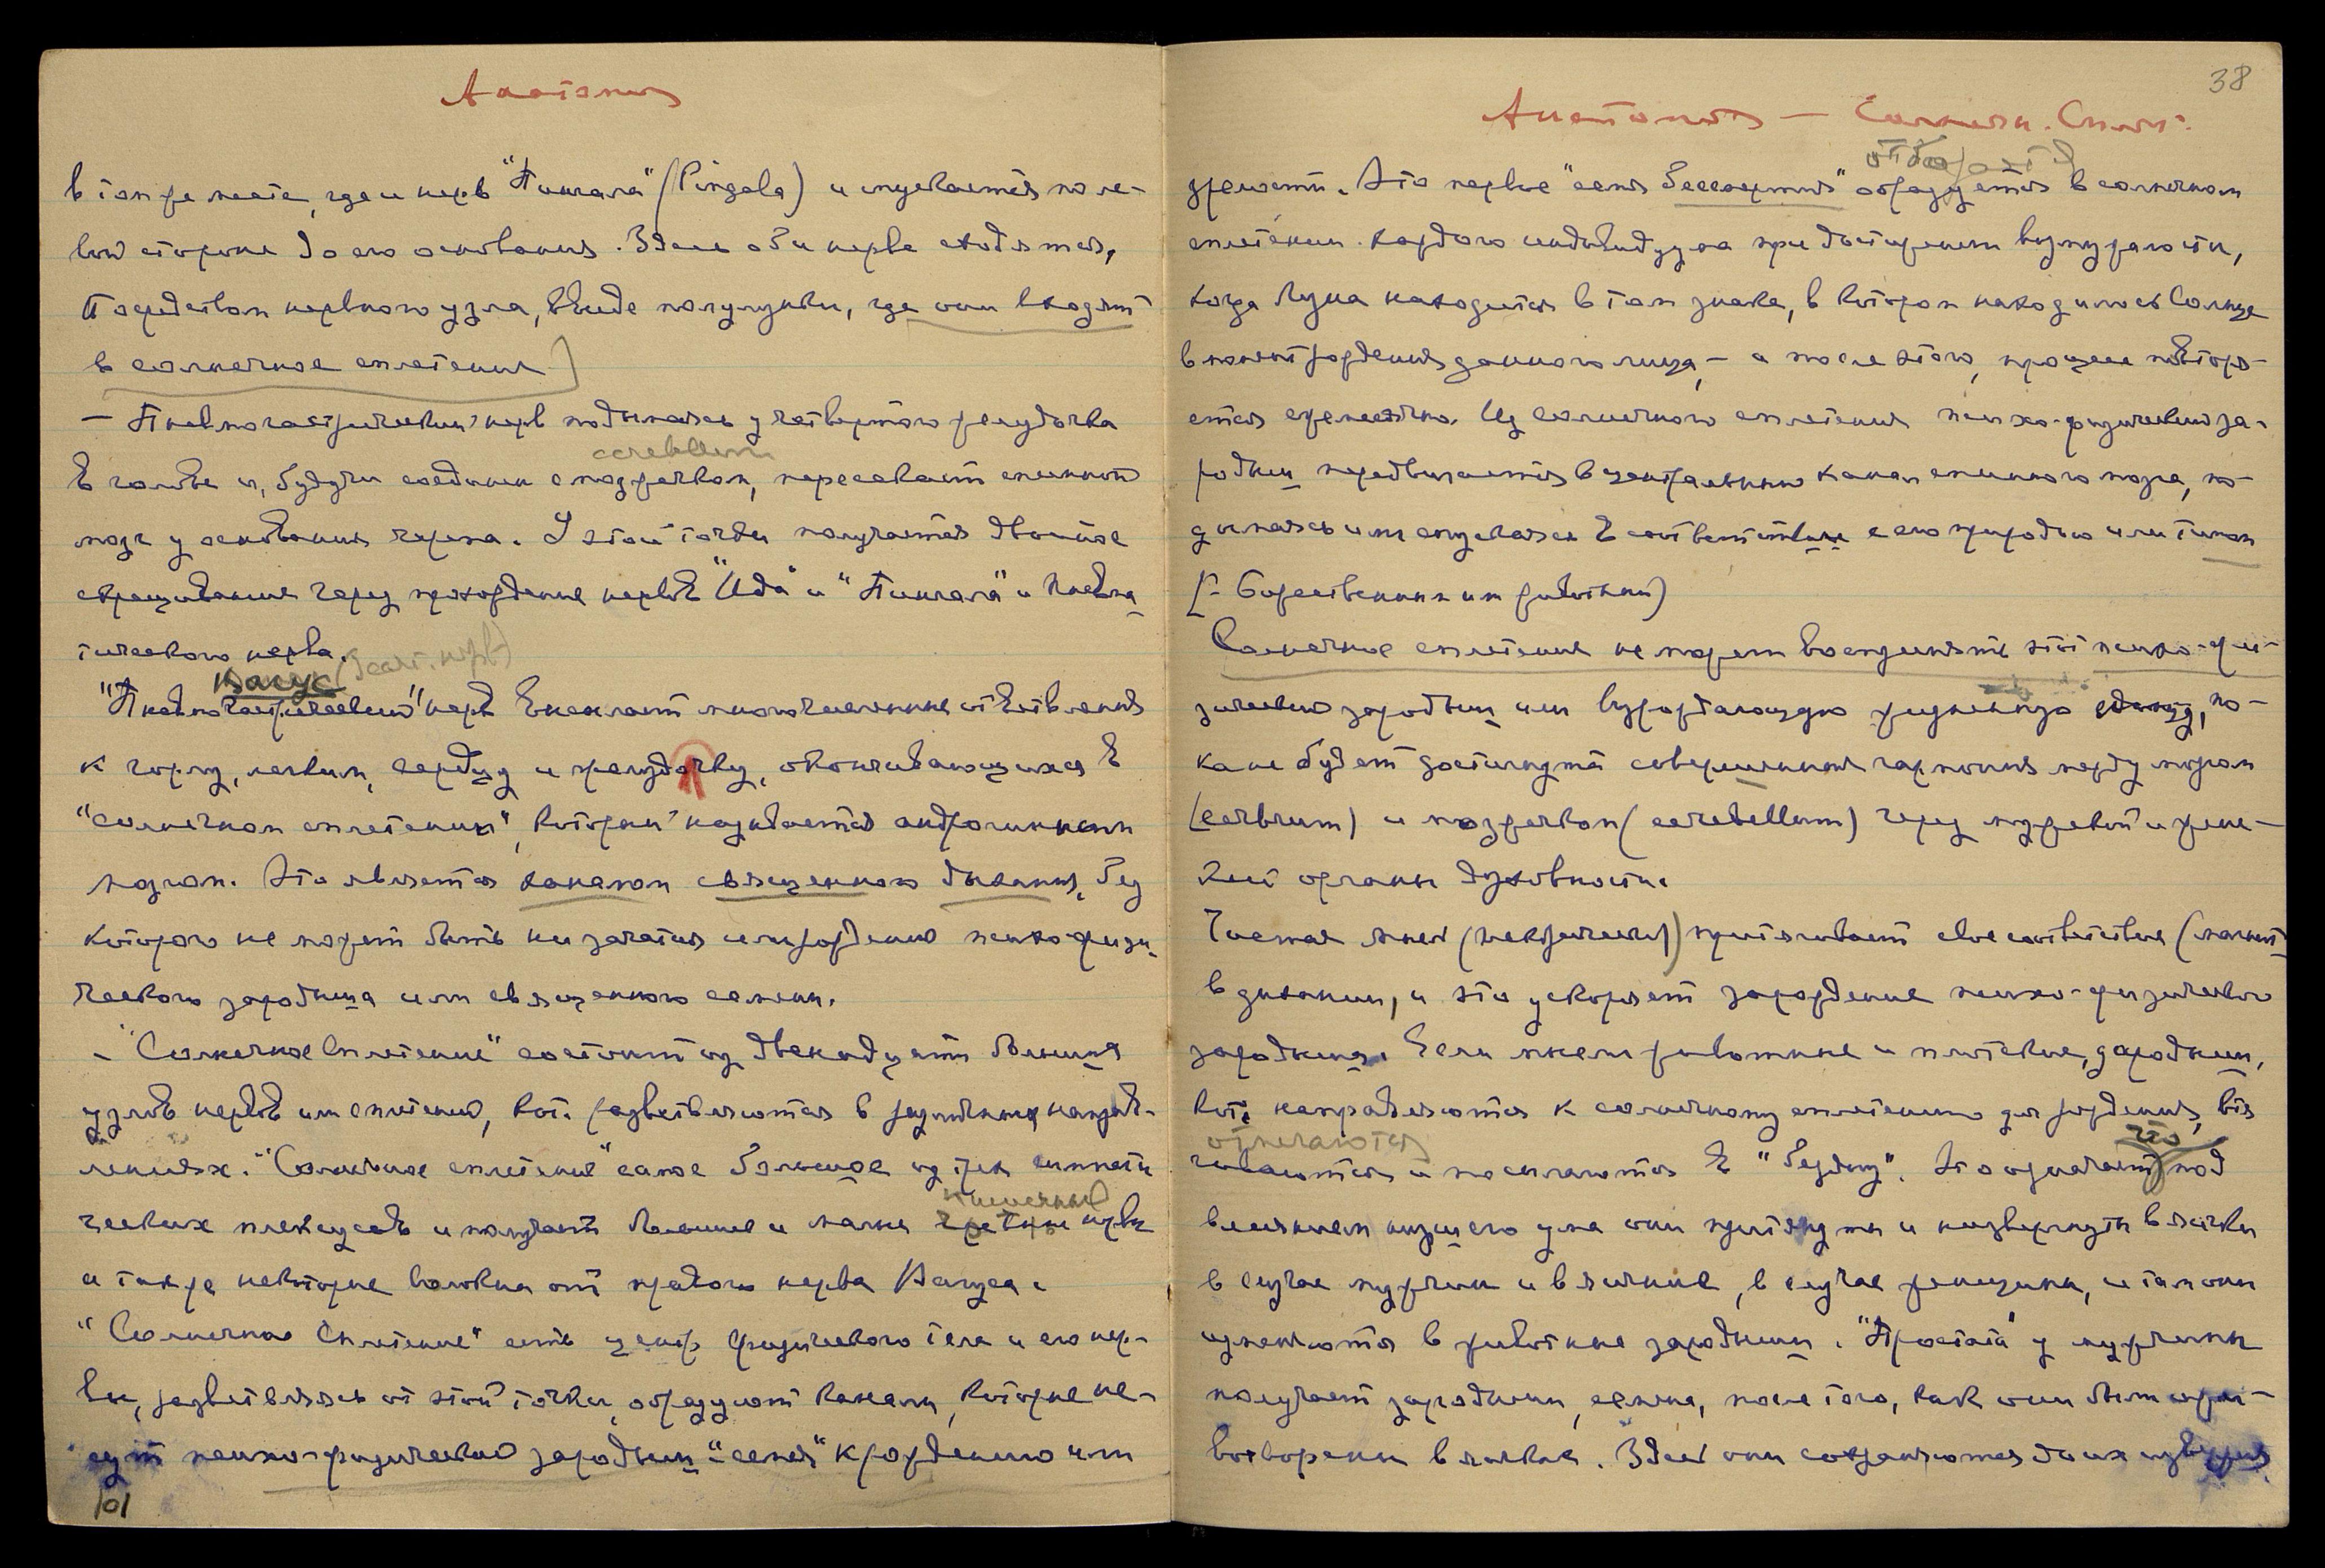 Анатомия
в том же месте, где и нерв "Пингала" (Pingala) и спускается по ле-
вой стороне до его основания. Здесь оба нерва сходятся,
посредством нервного узла, в виде полулуния, где они входят
в солнечное сплетение
— Пневмогастрический нерв подымаясь у четвертого желудочка
cerebellum
в голове и, будучи соединен с мозжечком, пересекает спинной
мозг у основания черепа. У этой точки получается двойное
скрещивание через прохождение нервов "Ида" и "Пингала" и Пневма
тического нерва.
Вагус (гаст. нерв)
"Пневмогастрический" нерв высылает многочисленные ответвления
к горлу, легким, сердцу и желудочку, оканчивающихся в
"солнечном сплетении", который называется андрогинным
мозгом. Это является каналом священного дыхания, без
которого не может быть ни зачатия или рождения психо-физи
ческого зародыша или священного семени.
– "Солнечное Сплетение" состоит из двенадцати больших
узлов нервов или сплетений, кот. разветвляются в различных направ-
лениях. "Солнечное сплетение" самое большое из трех симпати
кишечные
ческих плексусов и получает большие и малые нервы
а также некоторые волокна от правого нерва Вагуса.
"Солнечное Сплетение" есть центр физического тела и его нер-
вы, разветвляясь от этой точки, образуют каналы, которые не-
сут психо-физический зародыш – "семя" к рождению или
101
38
Анатомия — Солнечн. Сплет.
зрелости. Это первое "семя бессмертия" образуется в солнечном
сплетении каждого индивидуума при достижении возмужалости,
когда Луна находится в том знаке, в котором находилось Солнце
в момент рождения данного лица, – и после этого, процесс повторя-
ется ежемесячно. Из солнечного сплетения психо-физический за-
родыш передвигается в центральный канал спинного мозга, по-
дымаясь или спускаясь в соответствии с его природою или типом
(– Божественным или животным)
Солнечное сплетение не может воспринять этот психо-фи-
зический зародыш или возрождающую жидкость, по-
ка не будет достигнута совершенная гармония между мозгом
(cerbrum) и мозжечком (cerebellum) через мужской и жен-
ский органы духовности.
Чистая мысль (электрическая) притягивает свое соответствие (магнит
в дыхании, и это ускоряет зарождение психо-физического
зародыша. Если мысли животные и плотские, зародыши,
кот. направляются к солнечному сплетению для рождения,
отмечаются
и посылаются в "бездну". Это означает, что под
влиянием низшего ума они притянуты и низвергнуты в яички
в случае мужчин и в яичник, в случае женщины, и там они
изменяются в животные зародыши. "Простата" у мужчины
получает зародыши, семена, после того, как они были ожи-
вотворены в яичке. Здесь они сохраняются до их извержения